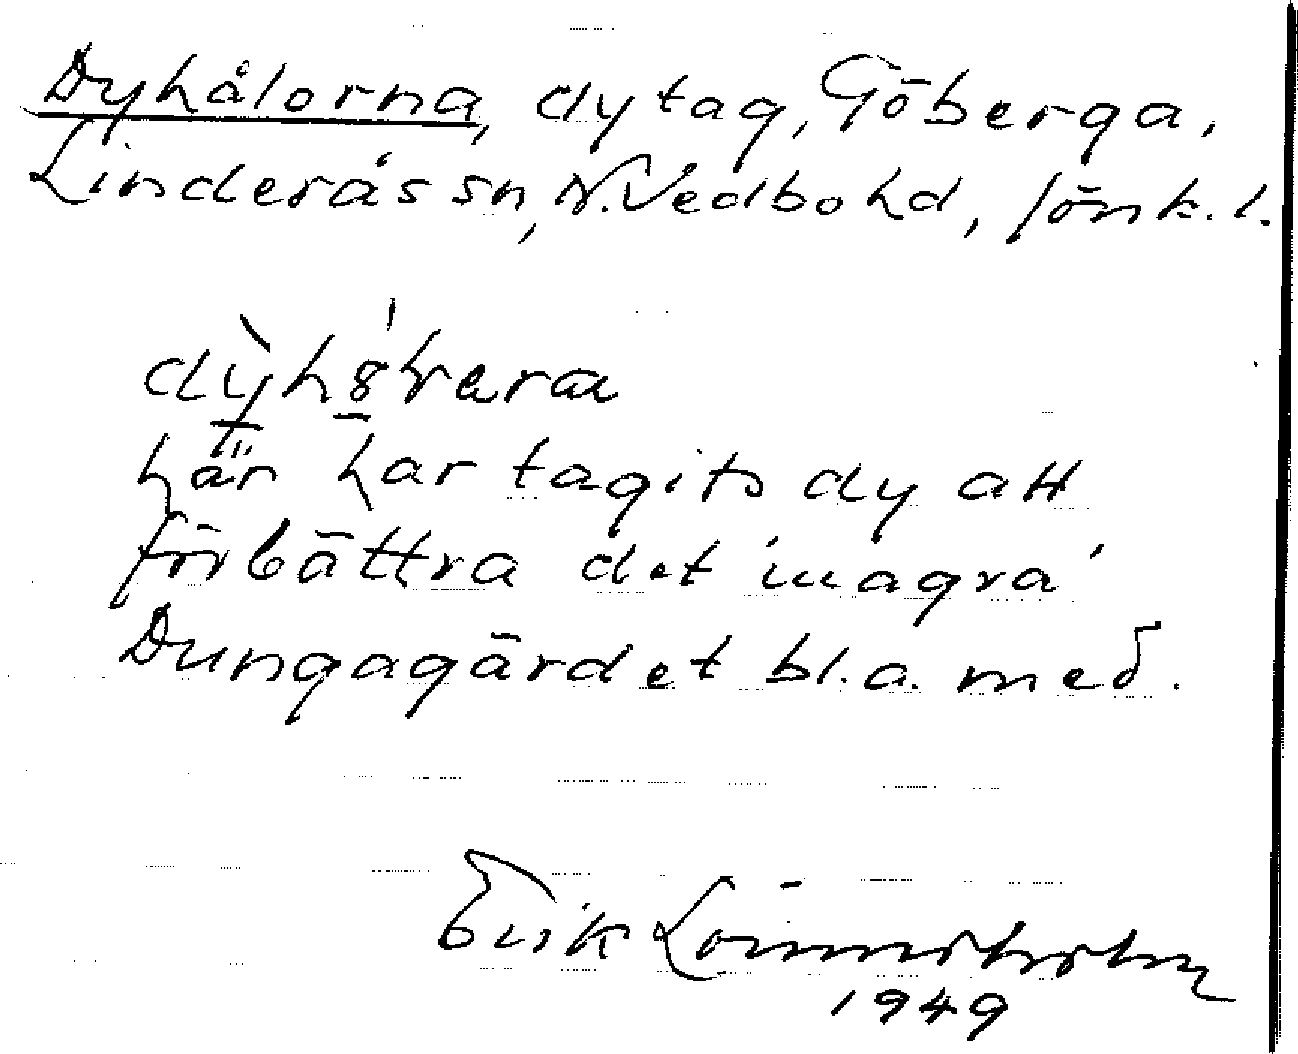 Dyhålorna, dytag, Göberga,
Linderås sn, N. Vedbo hd, Jönk. l.
här har tagits dy att
förbättra det 'magra'
Dungagärdet bl.a. med.
Erik Lönnerholm
1949